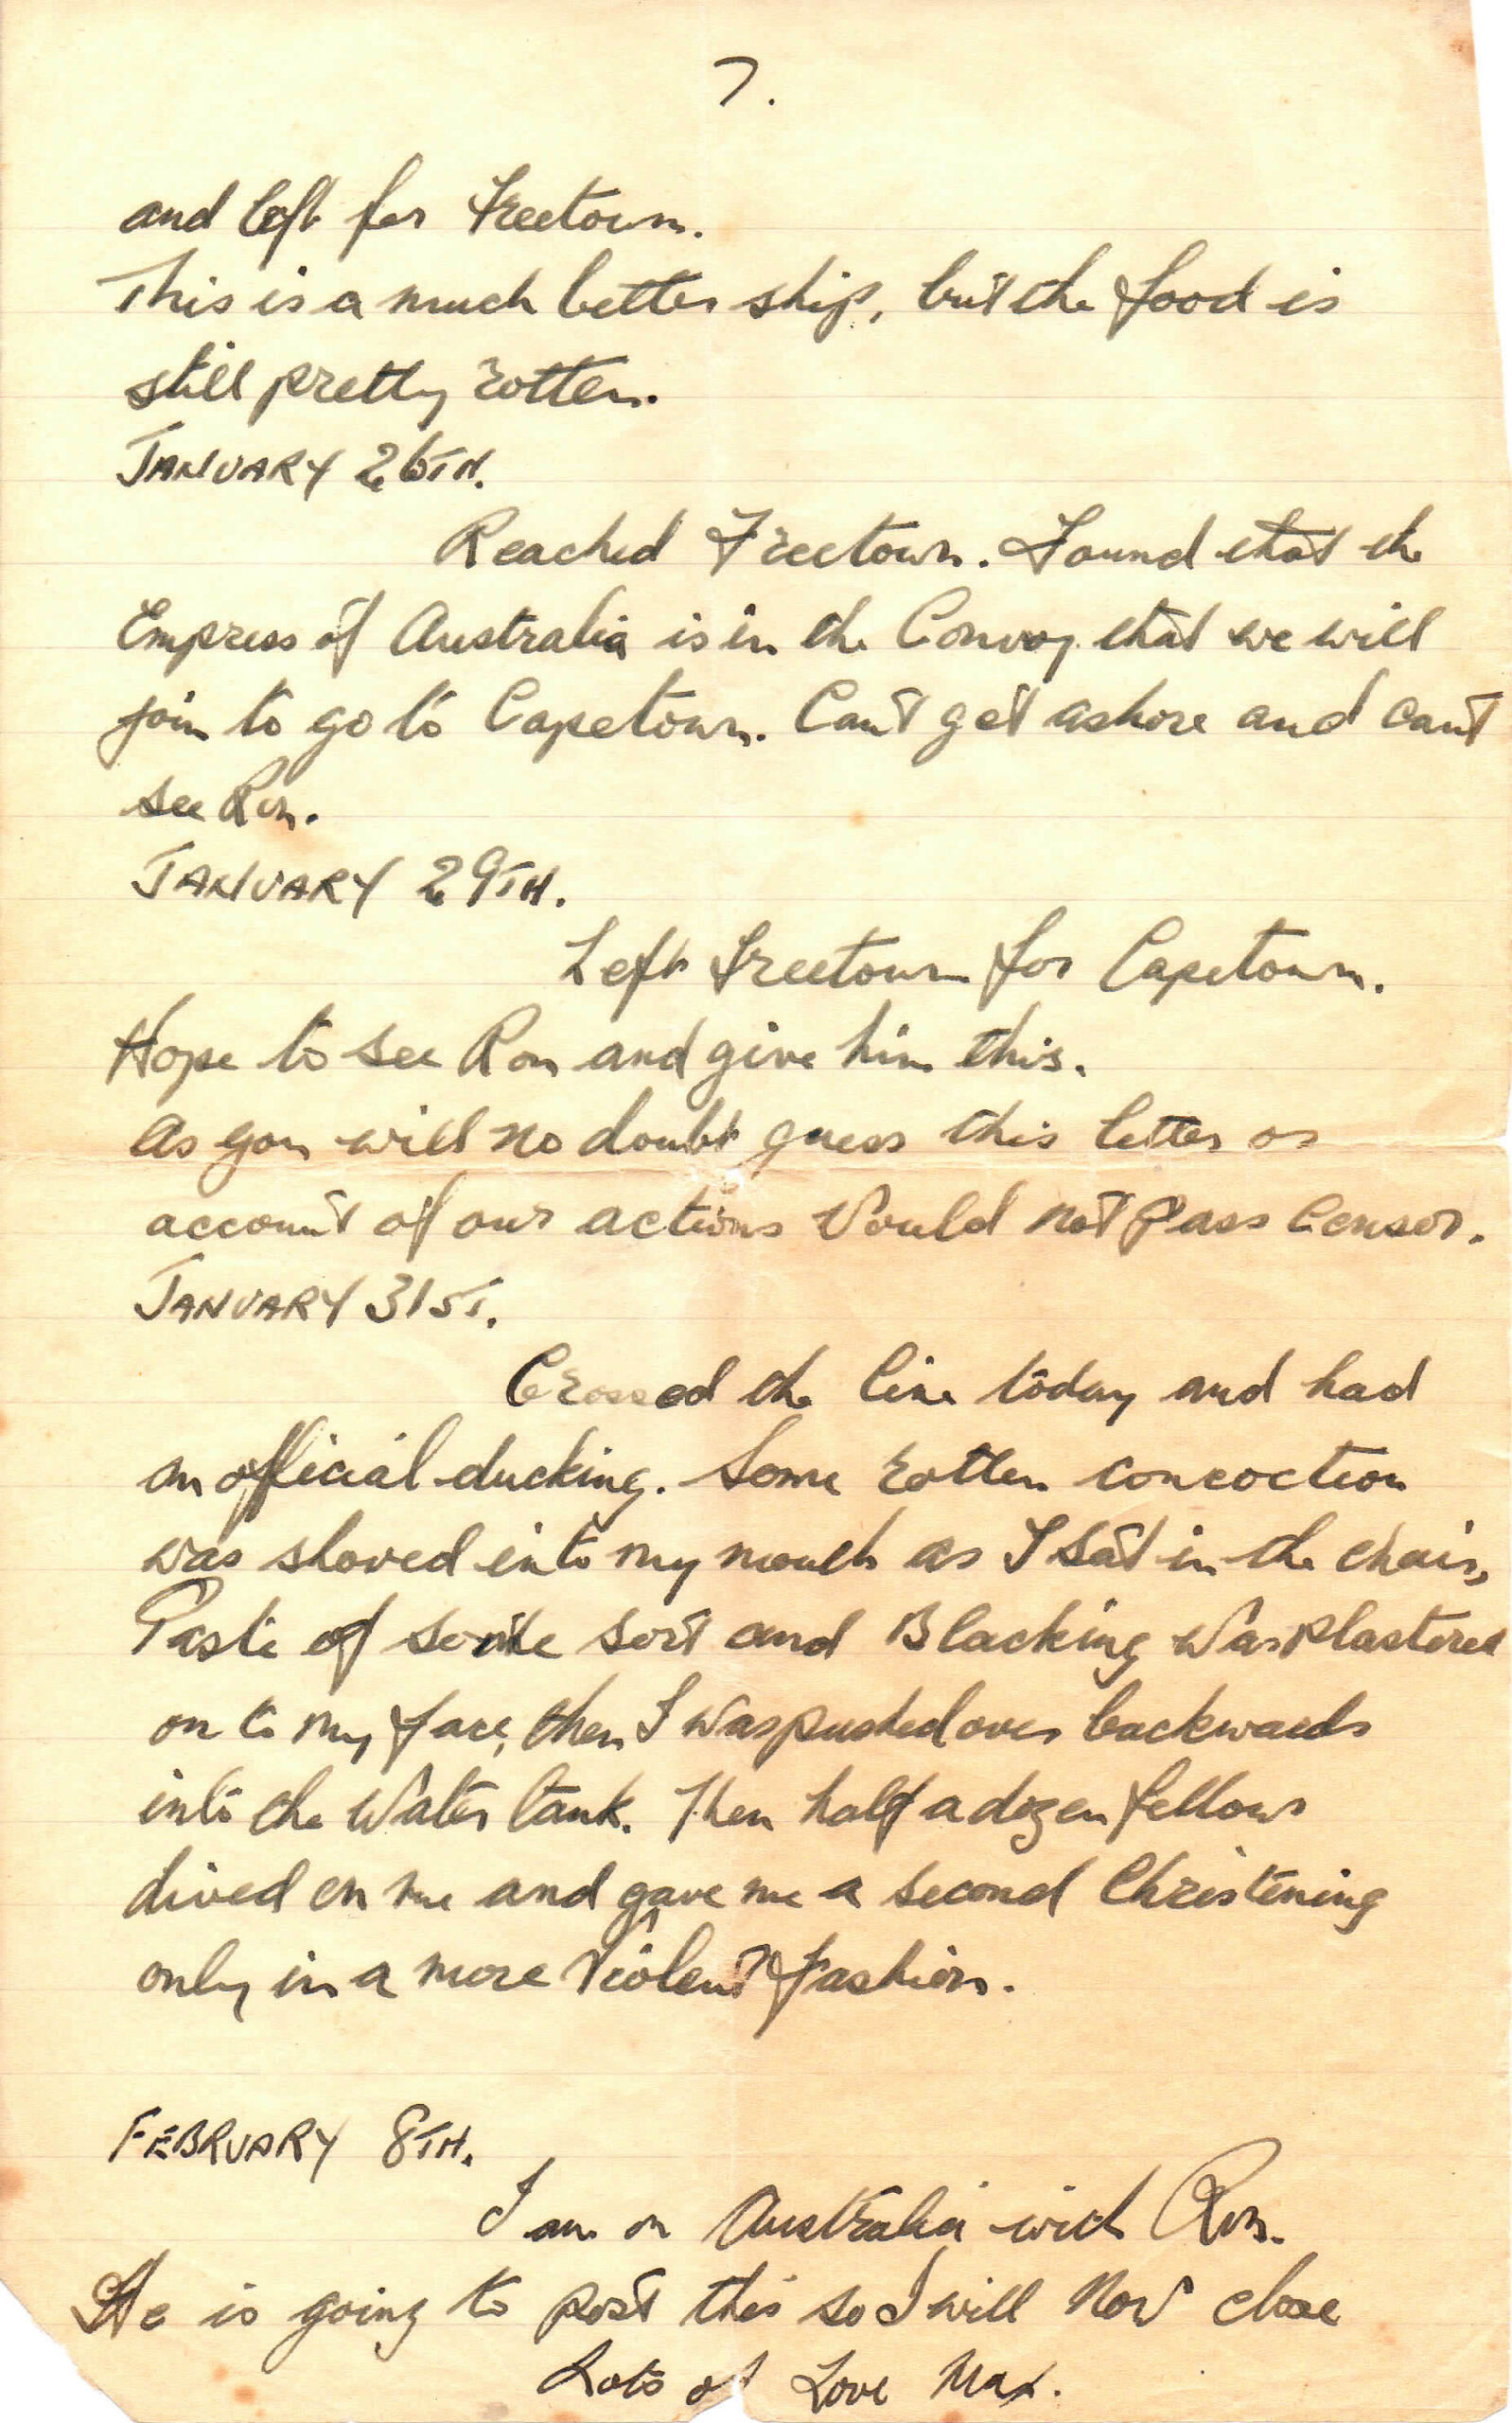 7.
and left for Freetown.
This is a much better ship, but the food is
still pretty rotten.
JANUARY 26TH.
Reached Freetown. Found that the
Empress of Australia is in the Convoy that we will
join to go to Capetown. Can't get ashore and can't
see Ron.
JANUARY 29TH.
Left Freetown for Capetown.
Hope to see Ron and give him this.
As you will no doubt guess this letter or
account of our actions Would not Pass Censor.
JANUARY 31ST.
Crossed the line today and had
an official ducking. Some rotten concoction
was shoved into my mouth as I sat in the chair,
Paste of some sort and Blacking Was Plastered
on to my face, then I Was pushed over backwards
into the Water tank. Then half a dozen fellows
dived on me and gave me a second Christening
only in a more Violent Fashion.
FEBRUARY 8TH.
I am on Australia with Ron.
He is going to post this so I will Now close
Lots of Love Max.